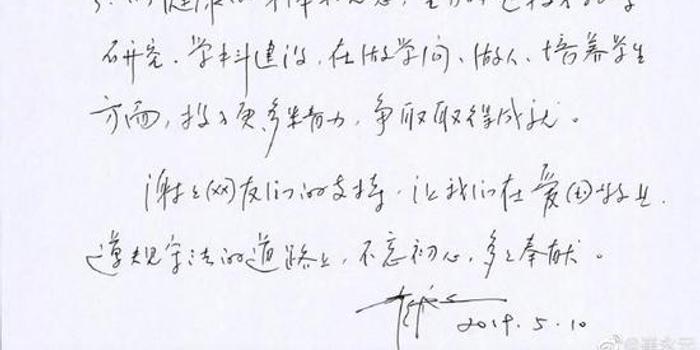 研究、学科建设、在做学问、做人、培养学生
方面，投入更多精力，争取取得成就。
谢谢网友们的支持，让我们在爱国敬业、
遵规守法的道路上，不忘初心，多多奉献。
2019.5.10
@崔永元